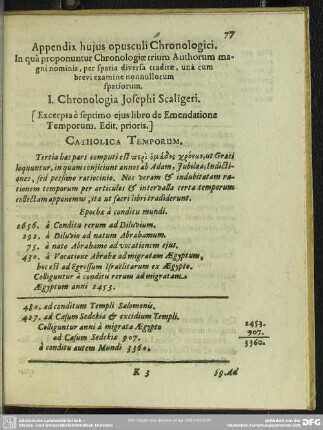 77
Appendix hujus opusculi Chronologici.
In quâ proponuntur Chronologiæ trium Authorum ma-
gni nominis, per spatia diversa traditæ, unà cum
brevi examine nonnullorum
spatiorum.
I. Chronologia Josephi Scaligeri.
[Excerpta è septimo ejus libro de Emendatione
Temporum. Edit, prioris.]
CATHOLICA TEMPORUM.
Tertia hæc pars computi est
loquuntur, in quam conjiciunt annos ab Adam, Jubilæa, Indicti-
ones, sed pessimo ratiocinio. Nos veram & indubitatam ra-
tionem temporum per articulos & intervalla certa temporum
collectam apponemus, ita ut sacri libri tradiderint.
Epocha à conditu mundi.
1656. à Conditu rerum ad Diluvium.
292. à Diluvio ad natum Abrahamum.
75. à nato Abrahamo ad vocationem ejus.
430. à Vocatione Abrahæ ad migratam Ægyptum,
hoc est ad egressum Israëlitarum ex Ægypto.
Colliguntur à conditu rerum ad migratam
Ægyptum anni 2453.
480. ad conditum Templi Salomonis.
427. ad Casum Sedekiæ & excidium Templi.
Colliguntur anni à migrata Ægypto
ad Casum Sedekiæ 907.
à conditu autem Mundi 3360.
2453.
907.
3360.
K 3
59. Ad
DFG